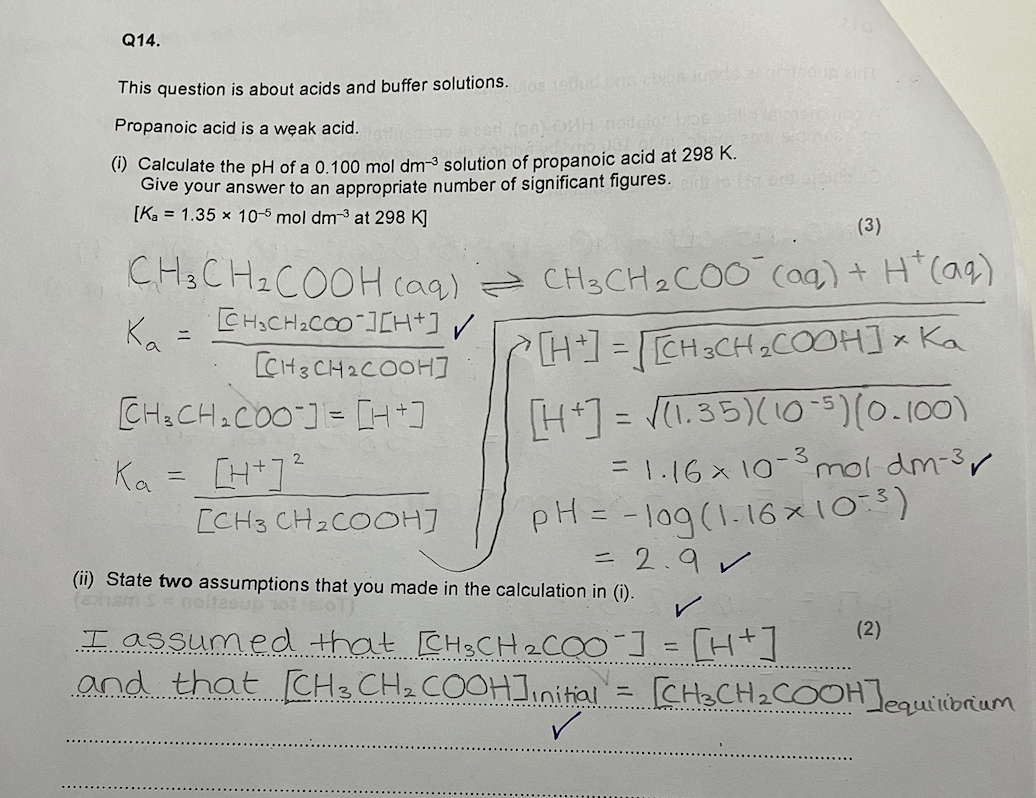 Q14.
This question is about acids and buffer solutions.
Propanoic acid is a weak acid.
(i) Calculate the pH of a 0.100 mol dm⁻³ solution of propanoic acid at 298 K.
Give your answer to an appropriate number of significant figures.
[Kₐ = 1.35 × 10⁻⁵ mol dm⁻³ at 298 K]
(3)
CH₃CH₂COOH (aq) ⇌ CH₃CH₂COO⁻ (aq) + H⁺ (aq)
Kₐ = [CH₃CH₂COO⁻][H⁺] / [CH₃CH₂COOH] ✓
[CH₃CH₂COO⁻] = [H⁺]
Kₐ = [H⁺]² / [CH₃CH₂COOH]
→ [H⁺] = √[CH₃CH₂COOH] × Kₐ
[H⁺] = √(1.35)(10⁻⁵)(0.100)
= 1.16 × 10⁻³ mol dm⁻³ ✓
pH = -log(1.16 × 10⁻³)
= 2.9 ✓
(ii) State two assumptions that you made in the calculation in (i).
(2)
I assumed that [CH₃CH₂COO⁻] = [H⁺] ✓
and that [CH₃CH₂COOH]initial = [CH₃CH₂COOH]equilibrium ✓